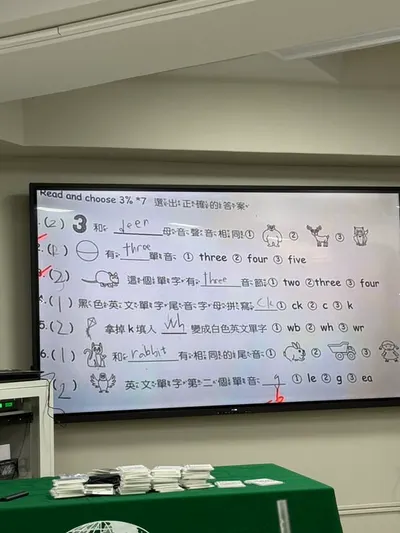 Read and choose 3% *7 選出正確的答案
1.(2) 3 和 deer 母音聲音相同 ① ② ③
2.(1) 有 three 單音 ① three ② four ③ five
3.(2) 這個單字有 three 音節 ① two ② three ③ four
4.(1) 黑色英文單字尾音字母拼寫 ck ① ck ② c ③ k
5.(2) 拿掉 k 填入 wh 變成白色英文單字 ① wb ② wh ③ wr
6.(1) 和 rabbit 有相同的尾音 ① ② ③
(2) 英文單字第二個單音 g ① le ② g ③ ea